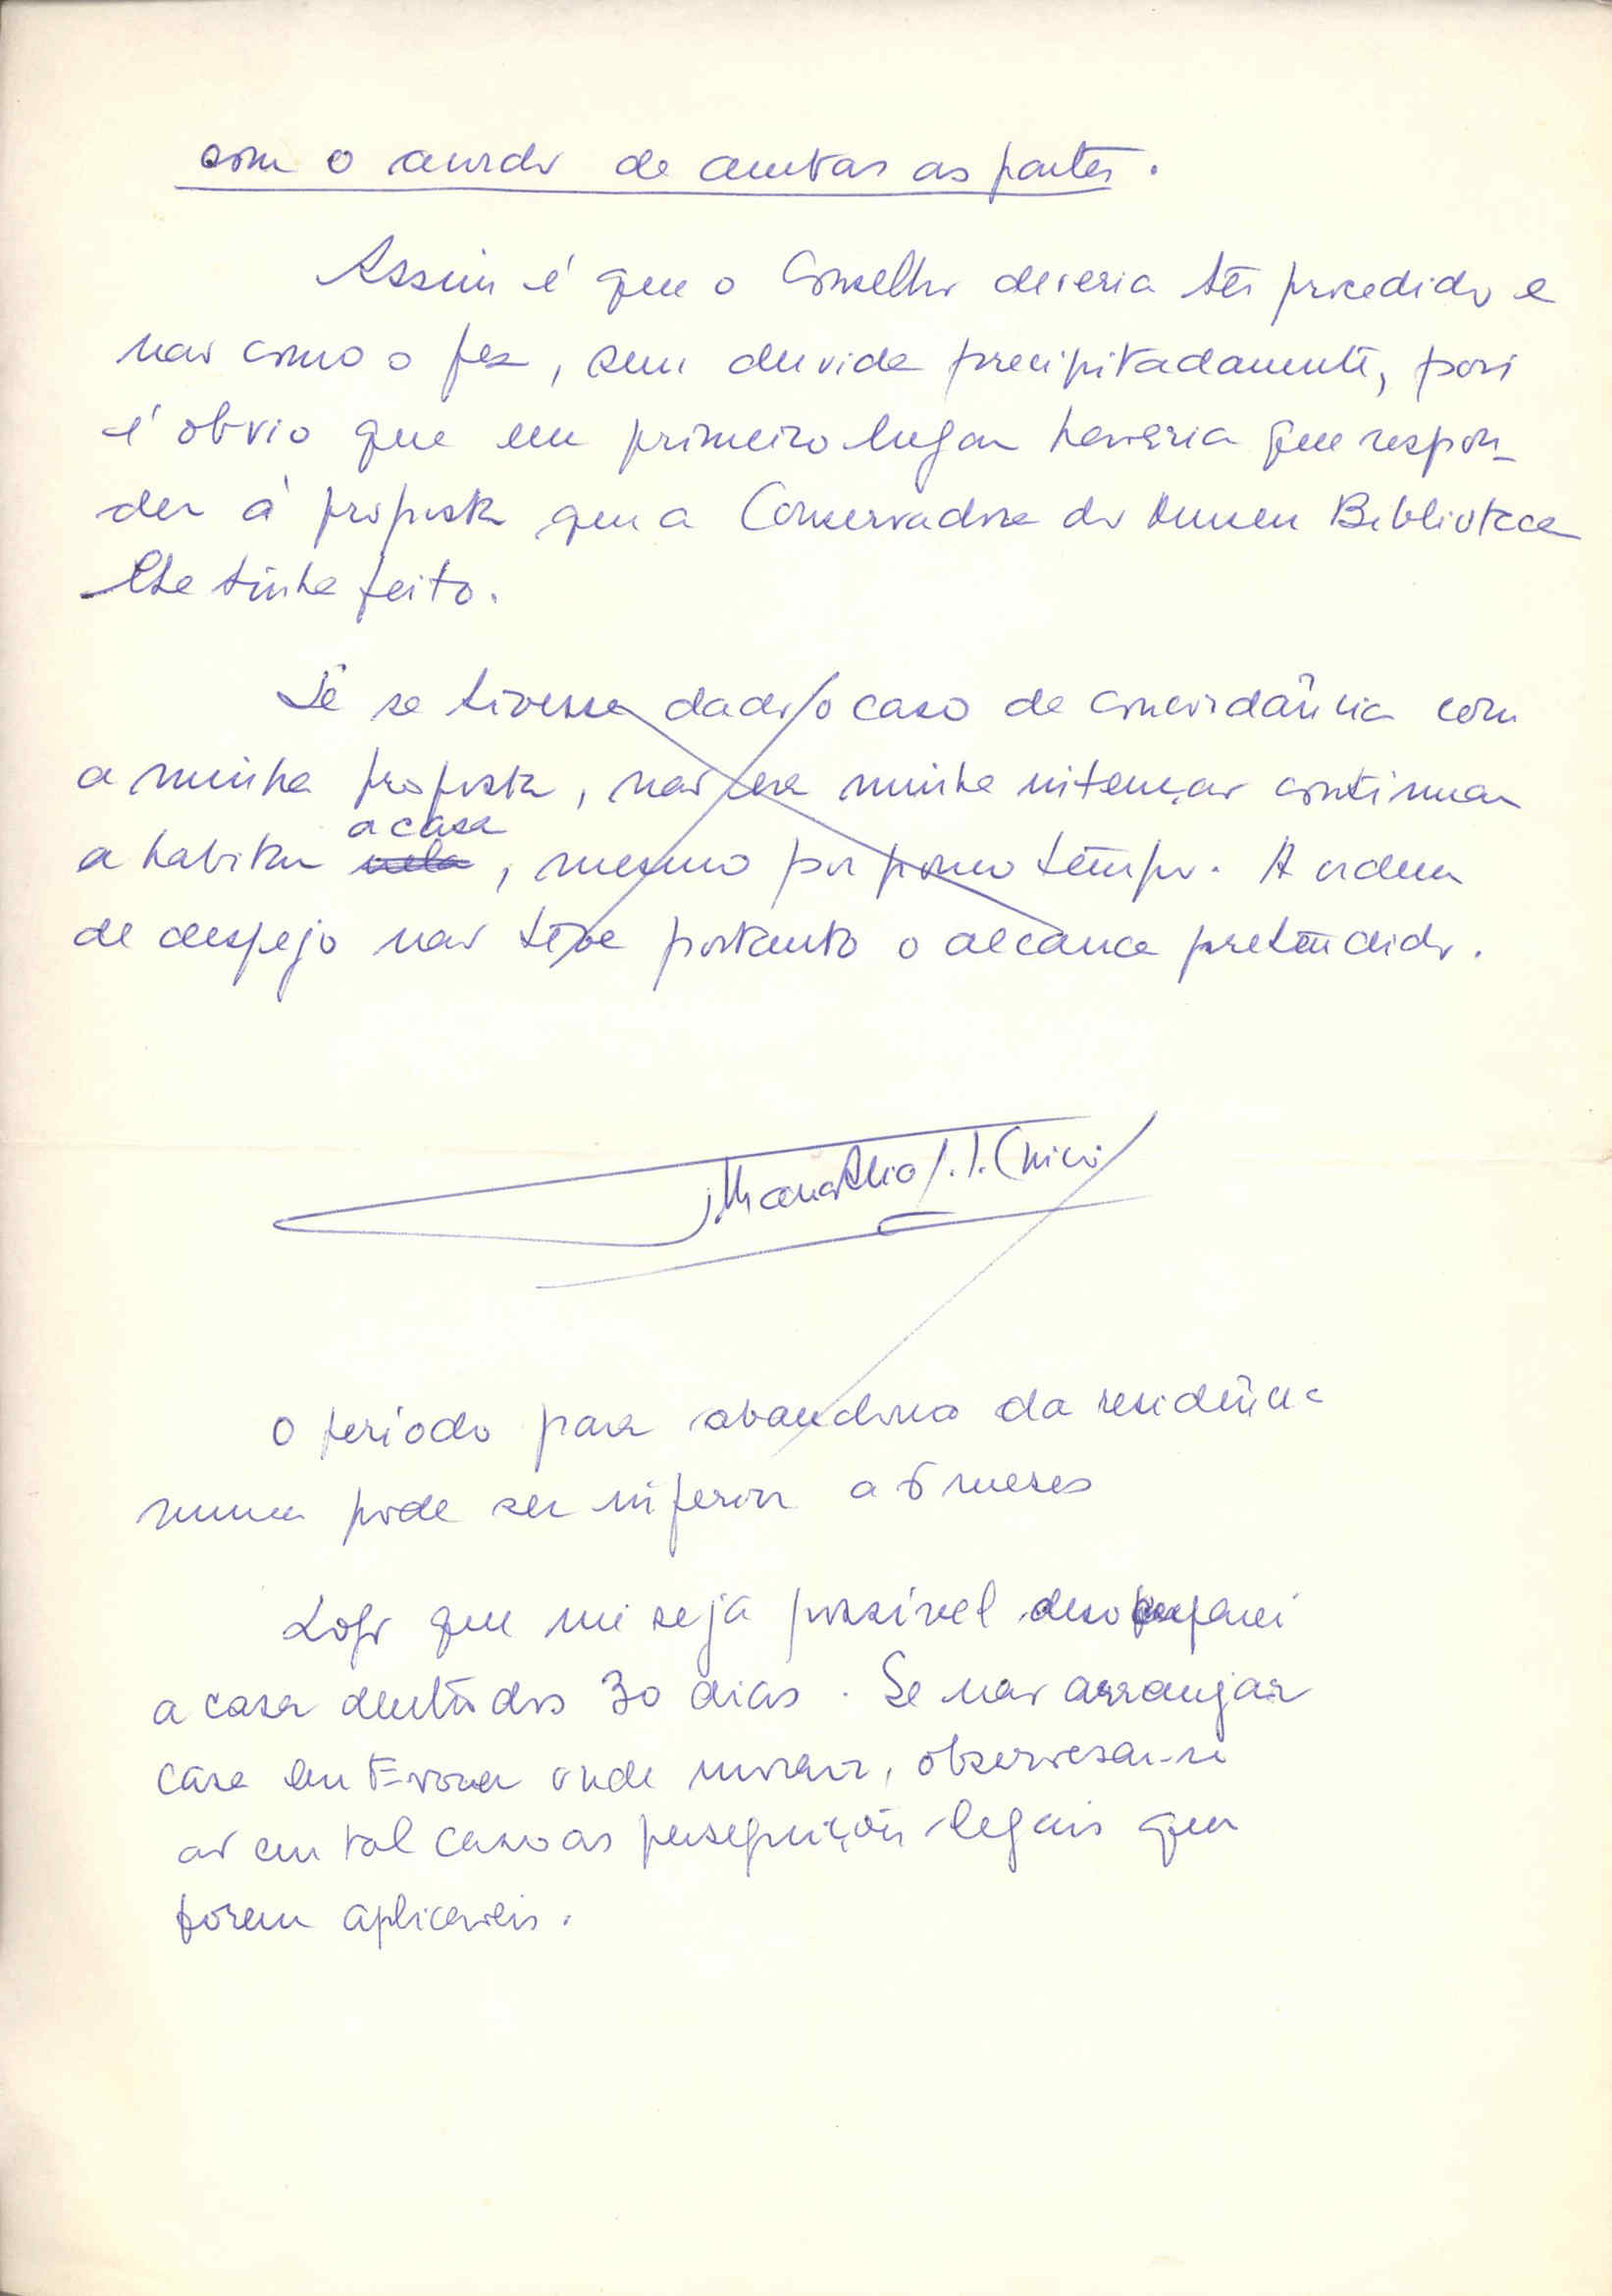 com o acordo de ambas as partes.
Assim é que o Conselho deveria ter procedido e
não como o fez, sem duvida precipitadamente, pois
é obvio que em primeiro lugar haveria que respon-
der á proposta que a Conservadora do Museu Biblioteca
lhe tinha feito.
Se se tivesse dado o caso de concordância com
a minha proposta, não era minha intenção continuar
a habitar a casa, mesmo por pouco tempo. A ordem
de despejo não teve portanto o alcance pretendido.
O período para abandono da residência
nunca pode ser inferior a 6 meses
Logo que me seja possível desocuparei
a casa dentro dos 30 dias. Se não arranjar
casa em Evora onde morar, observesar-se
ão em tal caso as perseguições legais que
forem aplicaveis.